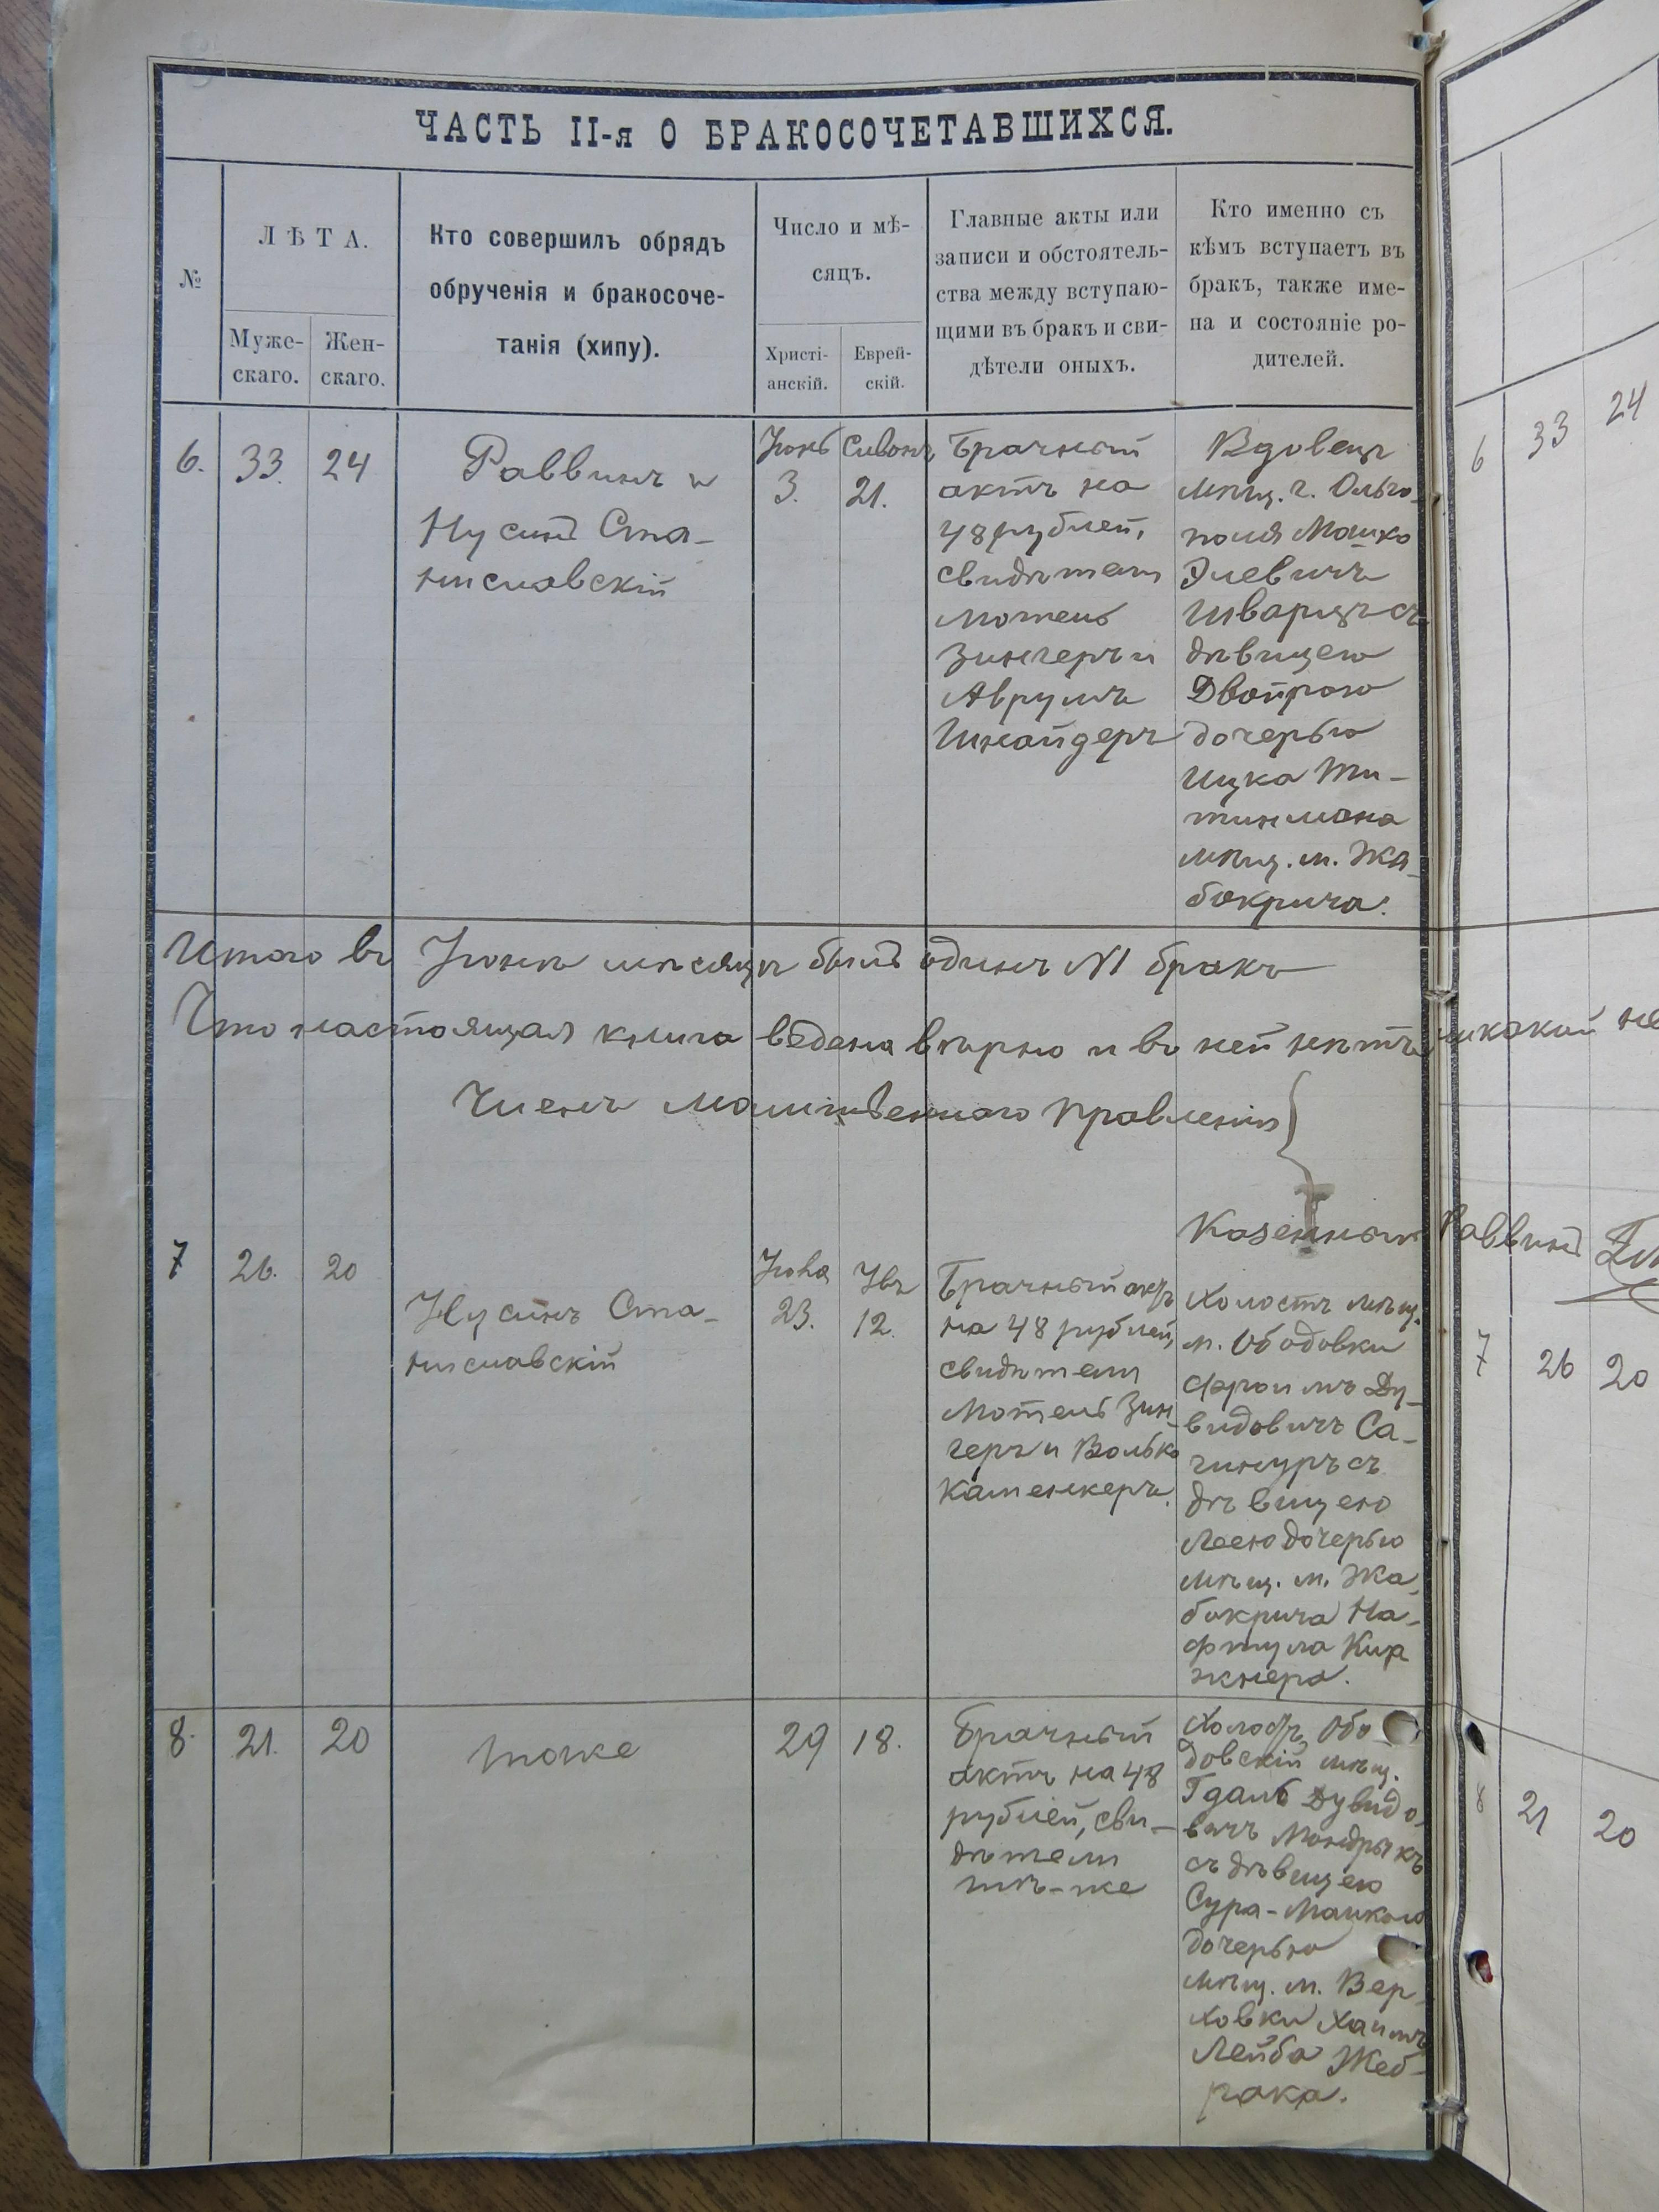 ЧАСТЬ II-я О БРАКОСОЧЕТАВШИХСЯ.
№
ЛѢТА.
Муже-
скаго.
Жен-
скаго.
Кто совершилъ обрядъ
обрученія и бракосоче-
танія (хипу).
Число и мѣ-
сяцъ.
Христі-
анскій.
Еврей-
скій.
Главные акты или
записи и обстоятель-
ства между вступаю-
щими въ бракъ и сви-
дѣтели оныхъ.
Кто именно съ
кѣмъ вступаетъ въ
бракъ, также име-
на и состояніе ро-
дителей.
6.
33.
24
Раввинъ и
Нусинъ Ста-
ниславскій
Іюнь
3.
Сивонъ
21.
Брачный
актъ на
48 рублей,
свидѣтели
Мотель
Зингеръ и
Аврумъ
Шнайдеръ
Вдовецъ
мѣщ. г. Ольго-
поля Мошко
Элевичъ
Шварцъ съ
дѣвицею
Двойрою
дочерью
Ицка Ти-
тинмана
мѣщ. м. Жа-
бокрича.
Итого въ Іюнѣ мѣсяцѣ былъ одинъ №1 бракъ
Что настоящая книга ведена вѣрно и въ ней нѣтъ никакой не
Членъ Молитвеннаго Правленія
Казенный Раввинъ
7
26.
20
Нусинъ Ста-
ниславскій
Іюля
23.
12.
Брачный актъ
на 48 рублей,
свидѣтели
Мотель Зин-
геръ и Волько
Каменкеръ.
Холостъ мѣщ.
м. Ободовки
Фроимъ Ду-
видовичъ Са-
гинуръ съ
дѣвицею
Леею дочерью
мѣщ. м. Жа-
бокрича На-
фтула Кир
жнера.
8.
21.
20
тоже
29
18.
Брачный
актъ на 48
рублей, сви-
дѣтели
тѣ-же
Холостъ Обо
довскій мѣщ.
Гдаль Дувидо-
вичъ Мондрыкъ
съ дѣвицею
Сура-Маикою
дочерью
мѣщ. м. Вер-
ховки Хаимъ
Лейба Жеб-
рака.
6
33
24
7
26
20
8
21
20